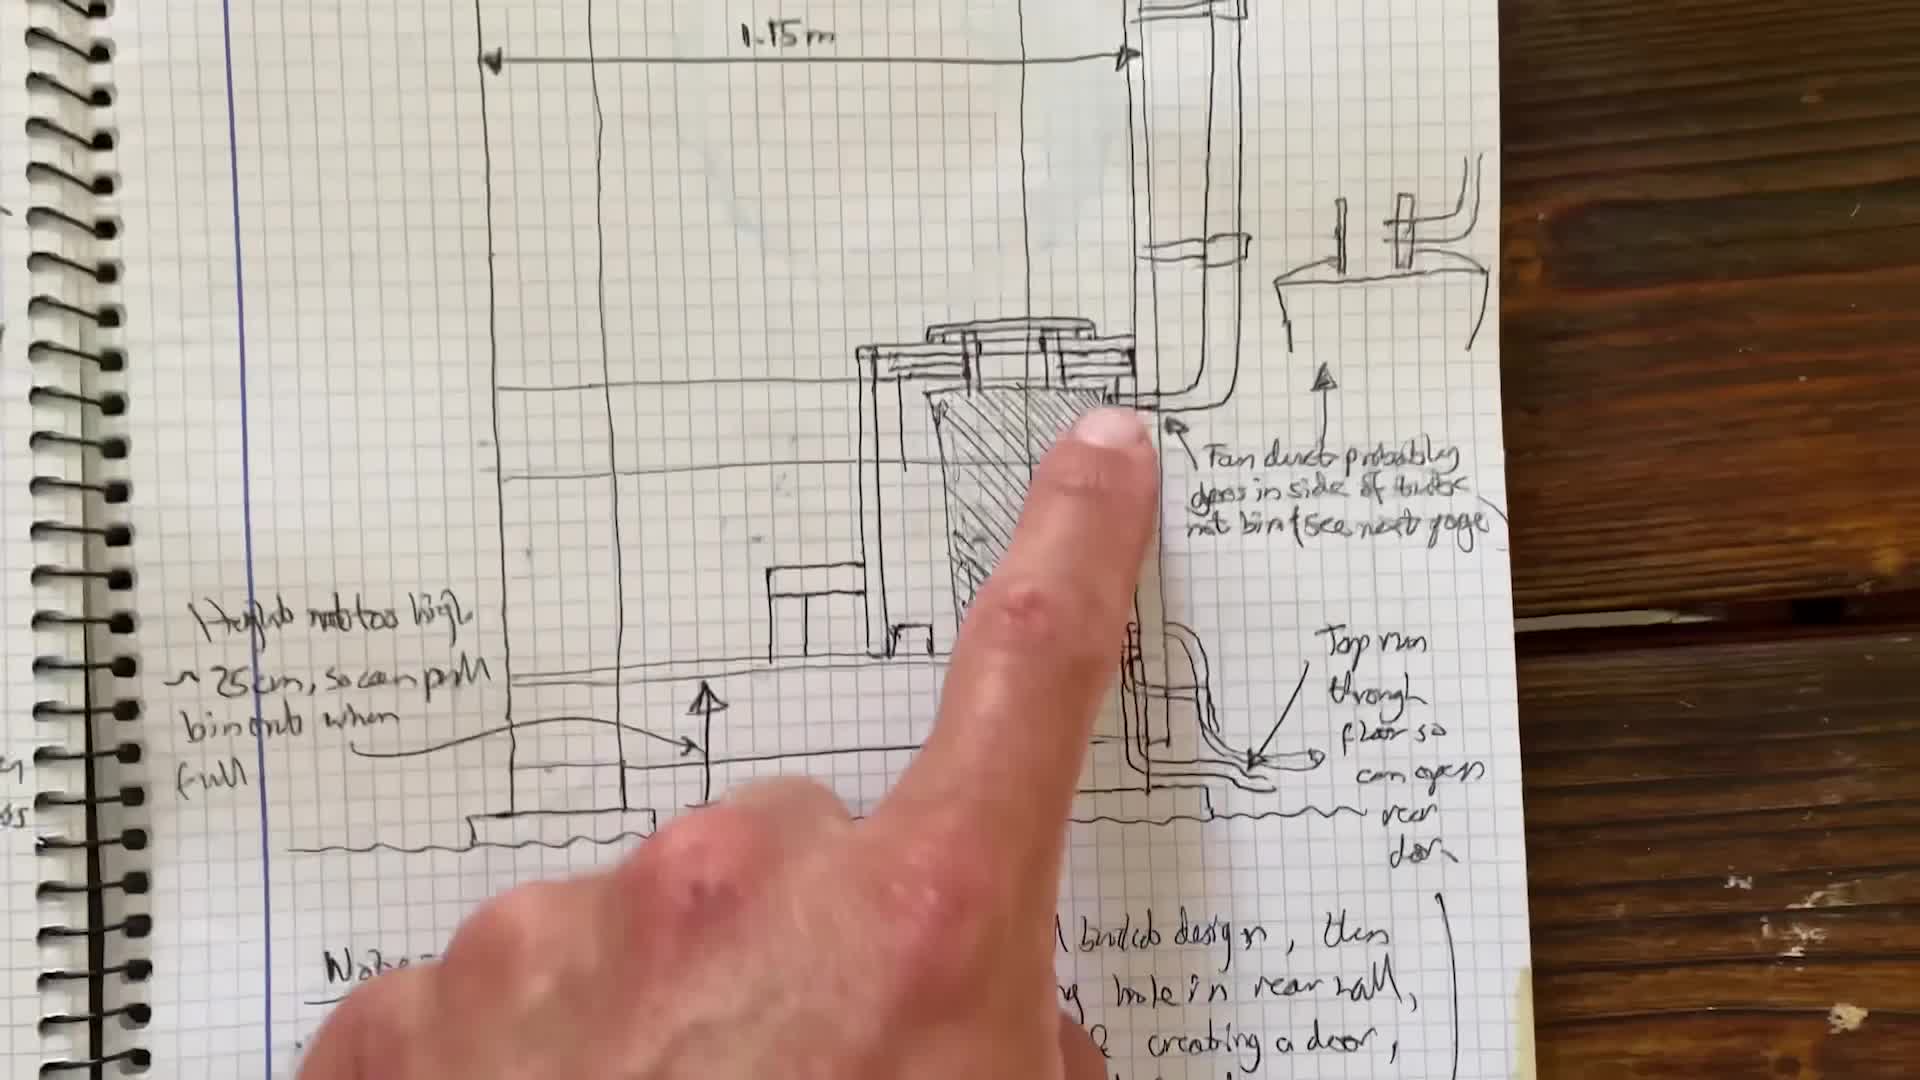 1.15m
Fan duct probably
goes in side of
not bin (see next page
Height not too high
~ 25cm, so can pull
bin out when
full
Top run
through
floor so
can open
rear
door
Note-
design, then
hole in rear wall,
creating a door,